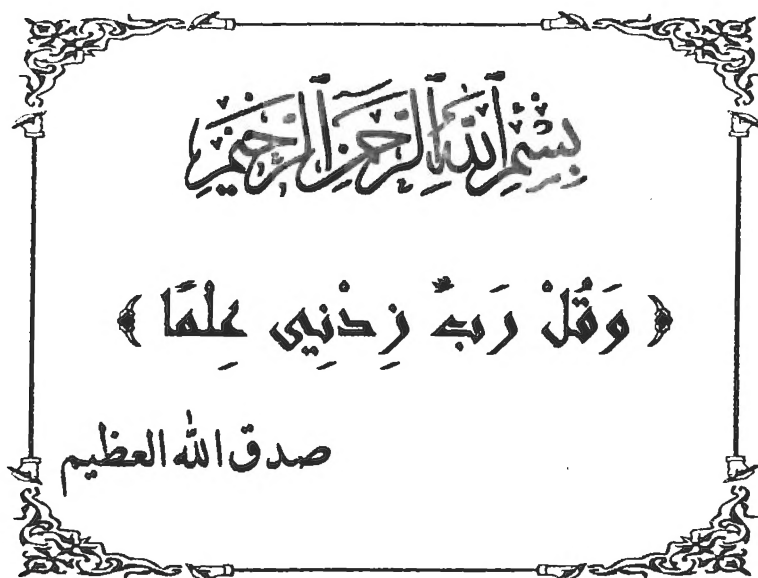 بِسْمِ اللَّهِ الرَّحْمَٰنِ الرَّحِيمِ
﴿ وَقُلْ رَبِّ زِدْنِي عِلْمًا ﴾
صدق الله العظيم